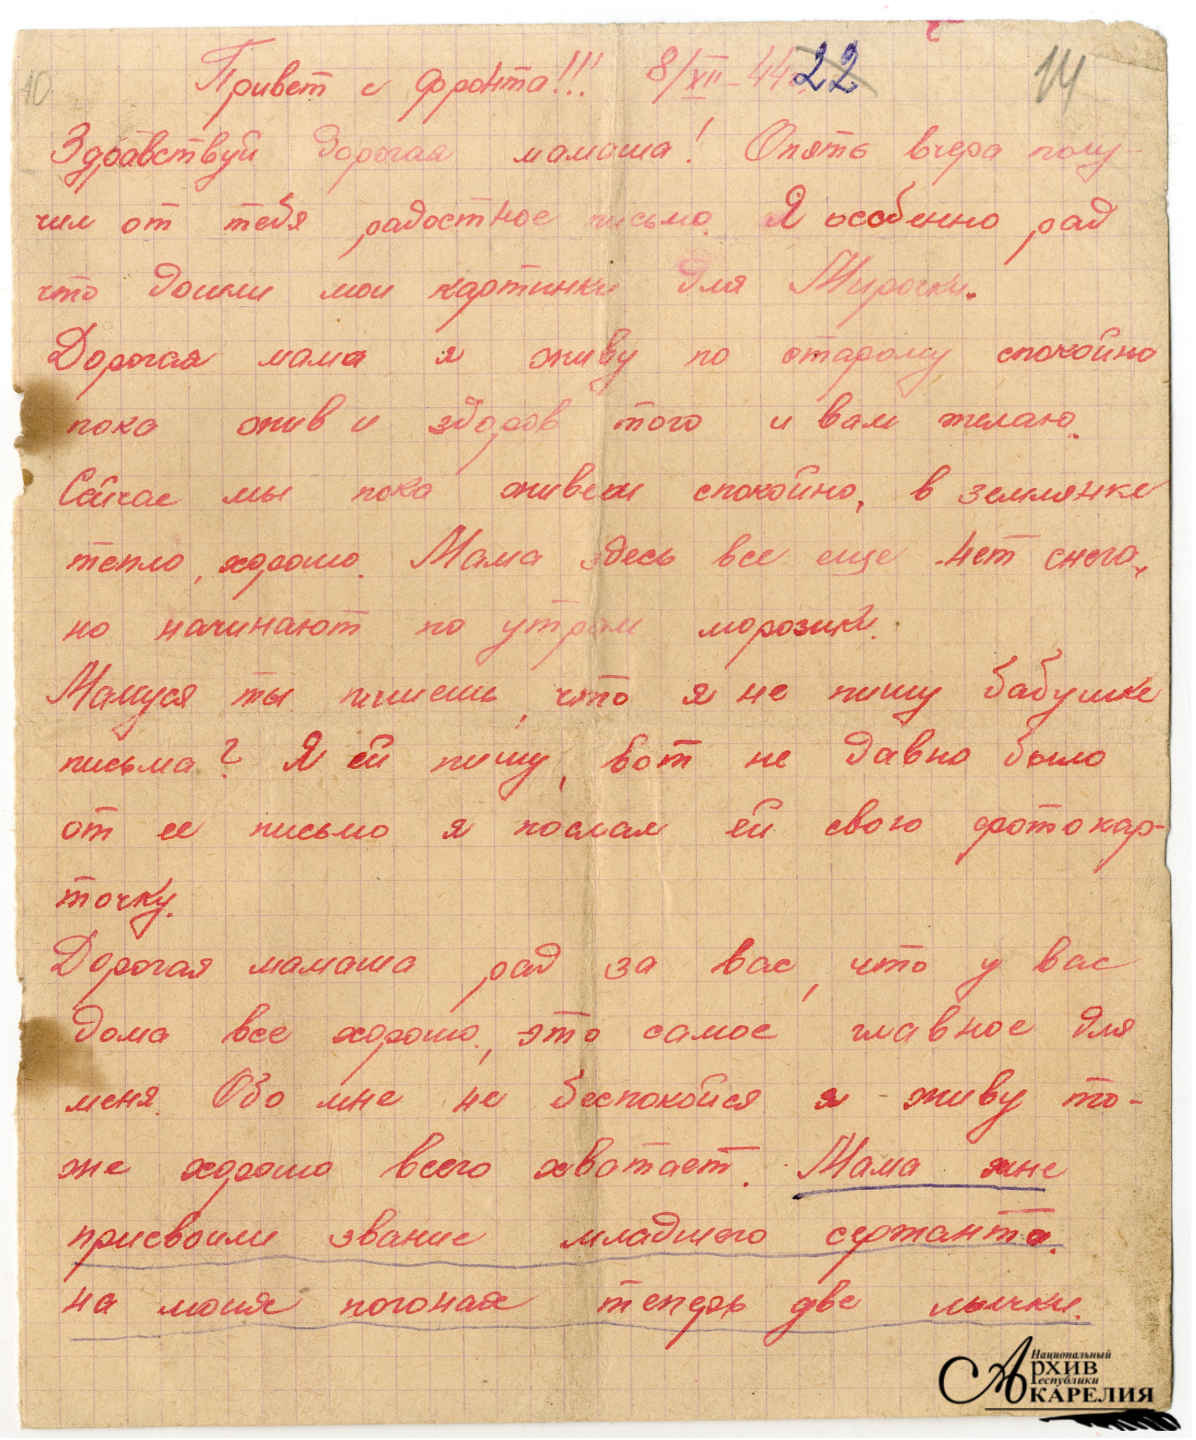 10
Привет с фронта!!! 8/XII-44 22 14
Здравствуй дорогая мамаша! Опять вчера полу-
чил от тебя радостное письмо. Я особенно рад
что дошли мои картинки для Мирочки.
Дорогая мама я живу по старому спокойно
пока жив и здоров того и вам желаю.
Сейчас мы пока живем спокойно, в землянке
тепло, хорошо. Мама здесь все еще нет снега,
но начинают по утрам морозики.
Мамуся ты пишешь, что я не пишу бабушке
письма? Я ей пишу, вот не давно было
от ее письмо я послал ей свою фотокар-
точку.
Дорогая мамаша рад за вас, что у вас
дома все хорошо, это самое главное для
меня. Обо мне не беспокойся я живу то-
же хорошо всего хватает. Мама мне
присвоили звание младшего сержанта.
на моих погонах теперь две лычки.
Национальный
Архив
Республики
Карелия